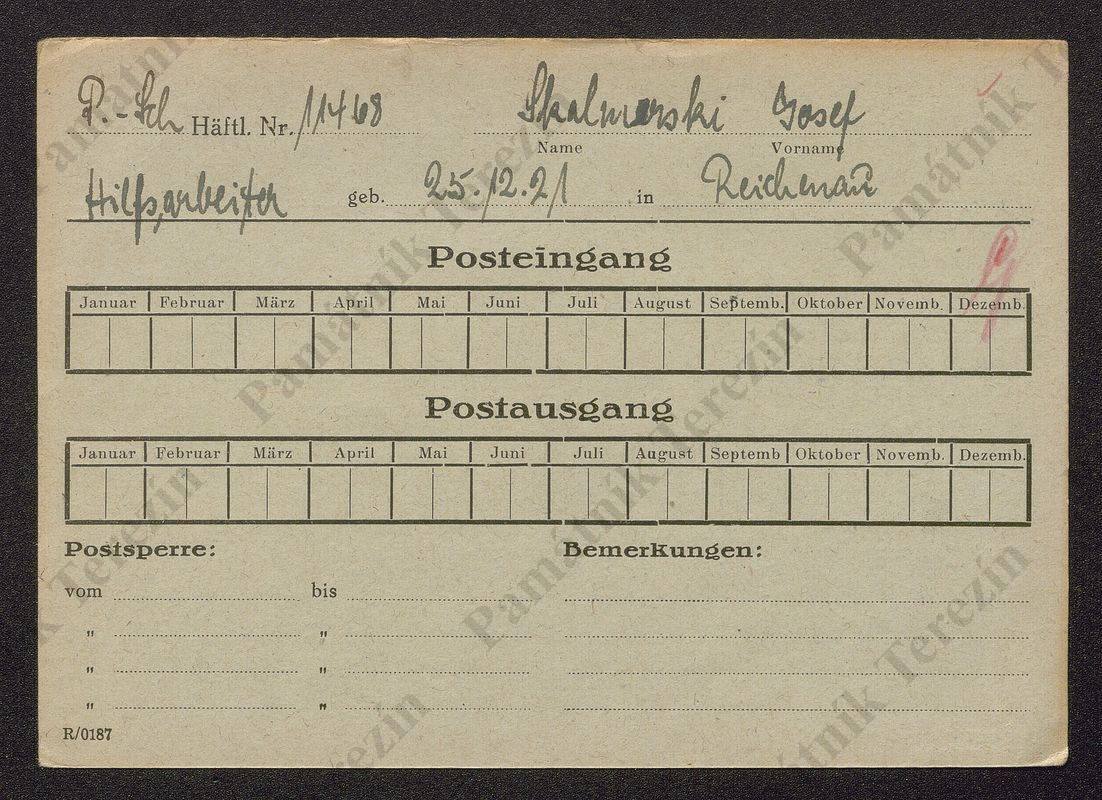 P. - Sch Häftl. Nr. 11468 Skalmerski Josef
Name Vorname
Hilfsarbeiter geb. 25.12.21 in Reichenau
Posteingang
Januar Februar März April Mai Juni Juli August Septemb. Oktober Novemb. Dezemb.
Postausgang
Januar Februar März April Mai Juni Juli August Septemb Oktober Novemb. Dezemb.
Postsperre: Bemerkungen:
vom bis
" "
" "
" "
R/0187
Památník Terezín